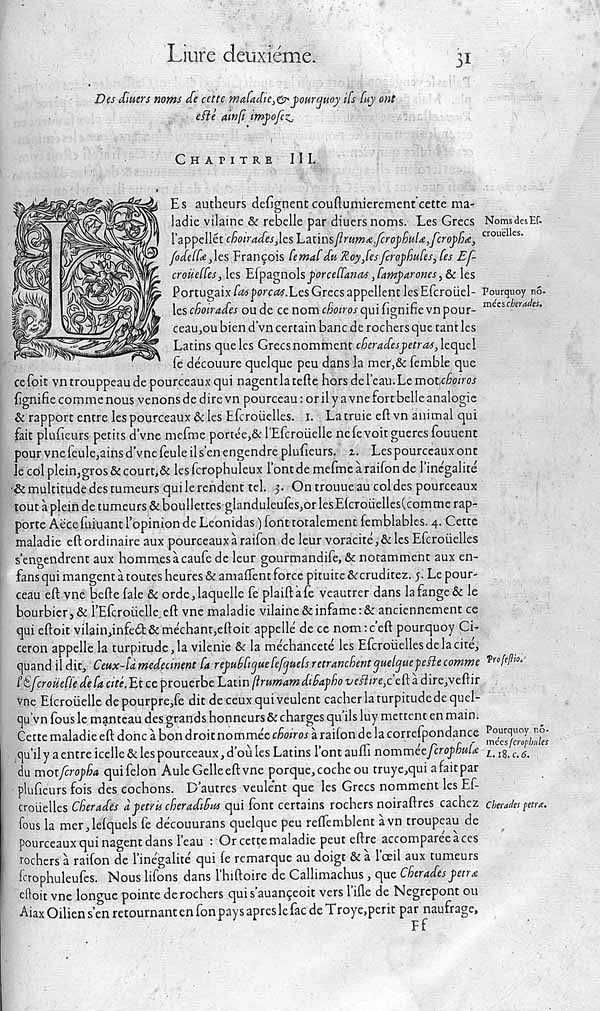 Liure deuxiéme. 31
Des diuers noms de cette maladie, & pourquoy ils luy ont
esté ainsi imposez.
CHAPITRE III.
LEs autheurs designent coustumierement cette ma-
ladie vilaine & rebelle par diuers noms. Les Grecs
l'appellēt choirades, les Latins strumæ, scrophulæ, scrophæ,
sodellæ, les François le mal du Roy, les scrophules, les Es-
croüelles, les Espagnols porcellanas, lamparones, & les
Portugaix las porcas. Les Grecs appellent les Escroüel-
les choirades ou de ce nom choiros qui signifie vn pour-
ceau, ou bien d'vn certain banc de rochers que tant les
Latins que les Grecs nomment cherades petras, lequel
se découure quelque peu dans la mer, & semble que
ce soit vn trouppeau de pourceaux qui nagent la teste hors de l'eau. Le mot choiros
signifie comme nous venons de dire vn pourceau: or il y a vne fort belle analogie
& rapport entre les pourceaux & les Escroüelles. 1. La truie est vn animal qui
fait plusieurs petits d'vne mesme portée, & l'Escroüelle ne se voit gueres souuent
pour vne seule, ains d'vne seule il s'en engendre plusieurs. 2. Les pourceaux ont
le col plein, gros & court, & les scrophuleux l'ont de mesme à raison de l'inégalité
& multitude des tumeurs qui le rendent tel. 3. On trouue au col des pourceaux
tout à plein de tumeurs & boullettes glanduleuses, or les Escroüelles (comme rap-
porte Aëce suiuant l'opinion de Leonidas) sont totalement semblables. 4. Cette
maladie est ordinaire aux pourceaux à raison de leur voracité, & les Escroüelles
s'engendrent aux hommes à cause de leur gourmandise, & notamment aux en-
fans qui mangent à toutes heures & amassent force pituite & cruditez. 5. Le pour-
ceau est vne beste sale & orde, laquelle se plaist à se veautrer dans la fange & le
bourbier, & l'Escroüelle est vne maladie vilaine & infame: & anciennement ce
qui estoit vilain, infect & méchant, estoit appellé de ce nom: c'est pourquoy Ci-
ceron appelle la turpitude, la vilenie & la méchanceté les Escroüelles de la cité,
quand il dit, Ceux-là medecinent la republique lesquels retranchent quelque peste comme
l'Escroüelle de la cité. Et ce prouerbe Latin strumam dibapho vestire, c'est à dire, vestir
vne Escroüelle de pourpre, se dit de ceux qui veulent cacher la turpitude de quel-
qu'vn sous le manteau des grands honneurs & charges qu'ils luy mettent en main.
Cette maladie est donc à bon droit nommée choiros à raison de la correspondance
qu'il y a entre icelle & les pourceaux, d'où les Latins l'ont aussi nommée scrophulæ
du mot scropha qui selon Aule Gelle est vne porque, coche ou truye, qui a fait par
plusieurs fois des cochons. D'autres veulent que les Grecs nomment les Es-
croüelles Cherades à petris cheradibus qui sont certains rochers noirastres cachez
sous la mer, lesquels se découurans quelque peu ressemblent à vn troupeau de
pourceaux qui nagent dans l'eau: Or cette maladie peut estre accomparée à ces
rochers à raison de l'inégalité qui se remarque au doigt & à l'œil aux tumeurs
scrophuleuses. Nous lisons dans l'histoire de Callimachus, que Cherades petræ
estoit vne longue pointe de rochers qui s'auançoit vers l'isle de Negrepont ou
Aiax Oilien s'en retournant en son pays apres le sac de Troye, perit par naufrage,
Ff
Noms des Es-
croüelles.
Pourquoy nō-
mées cherades.
Pro sestio.
Pourquoy nō-
mées scrophules
L. 18. c. 6.
Cherades petræ.